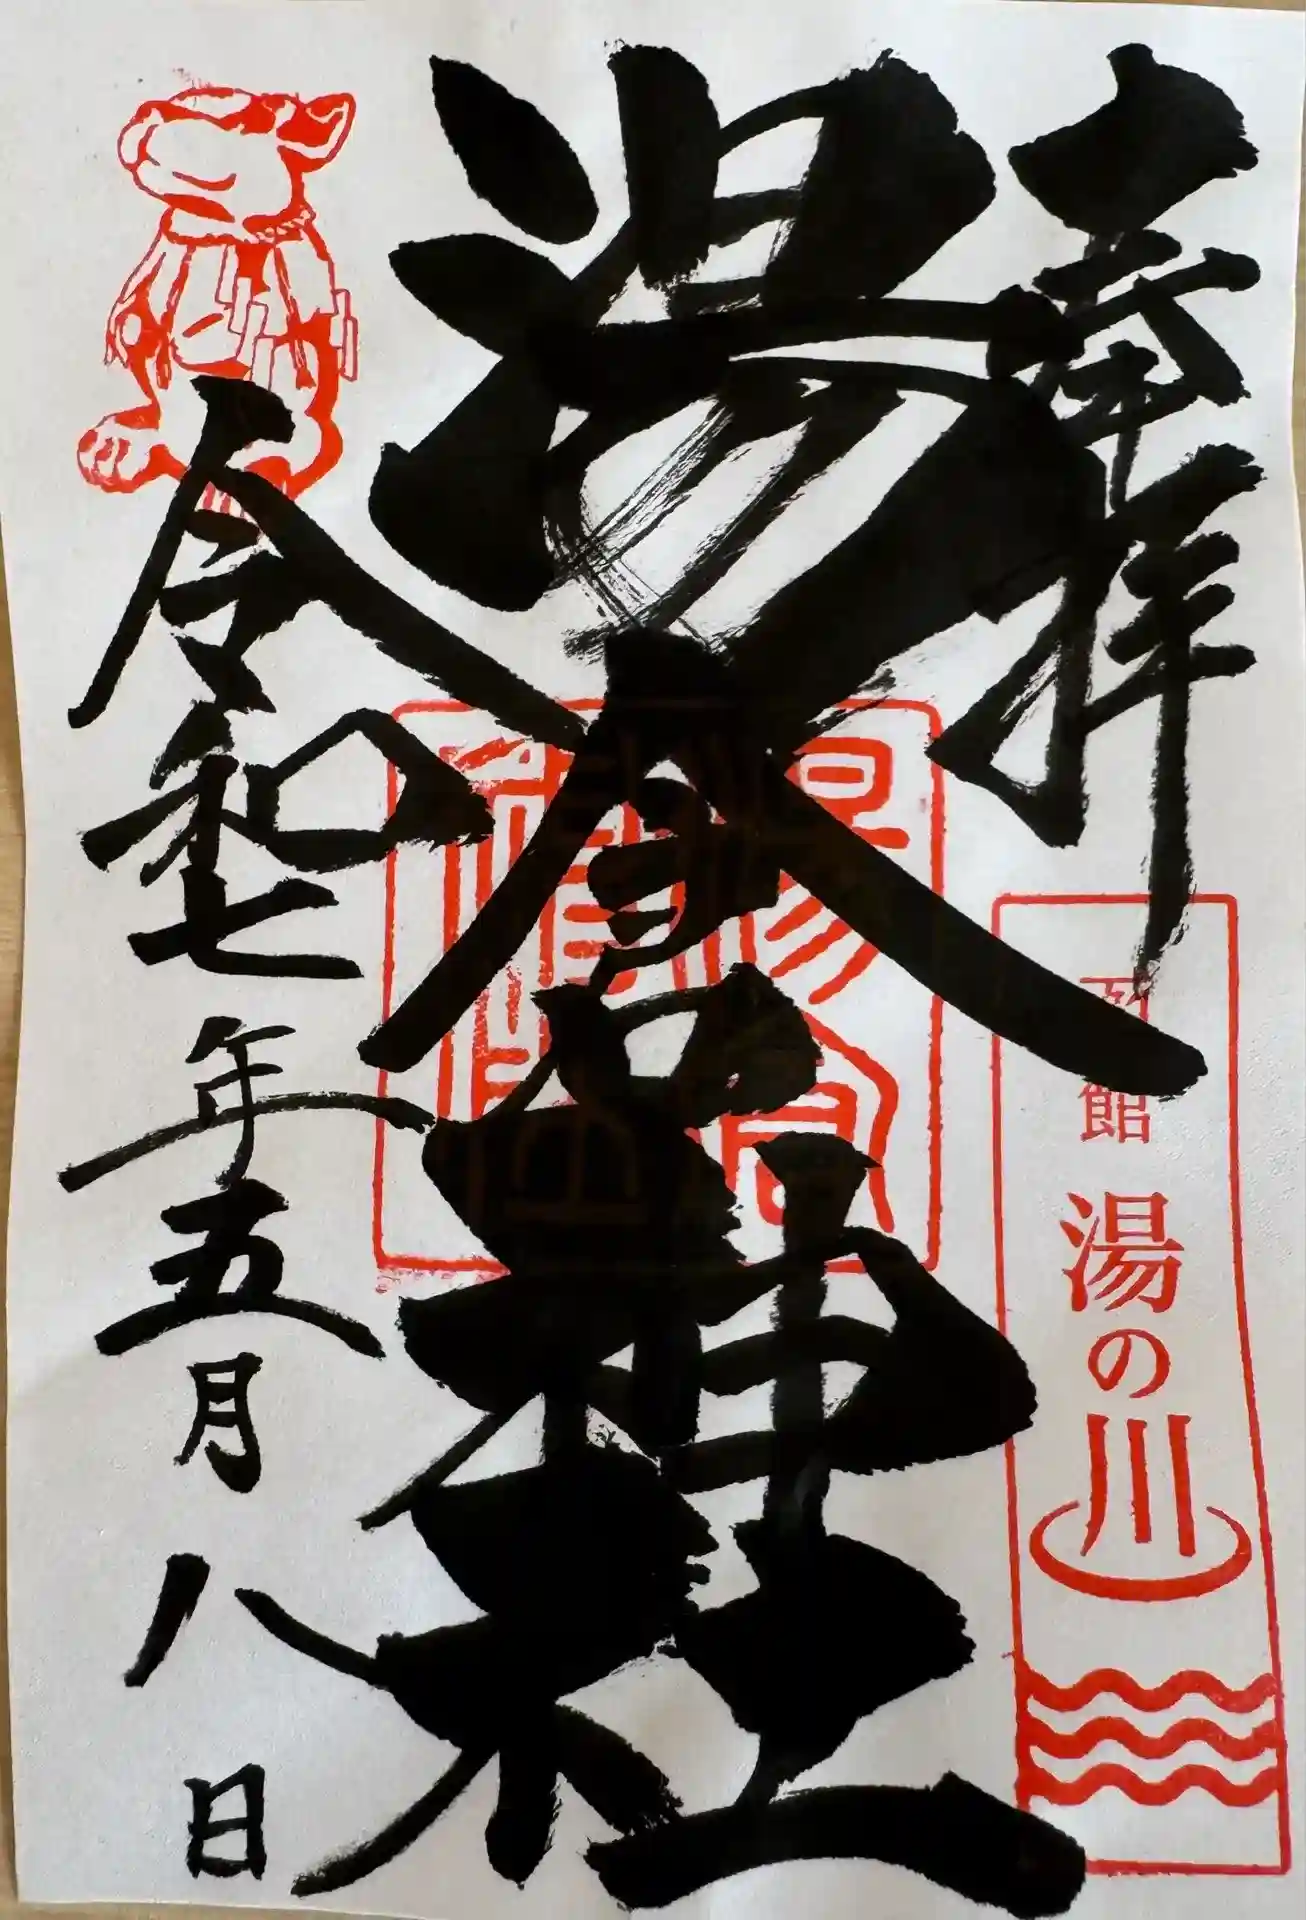 奉拝
函館
湯の川
湯倉神社
令和七年五月八日